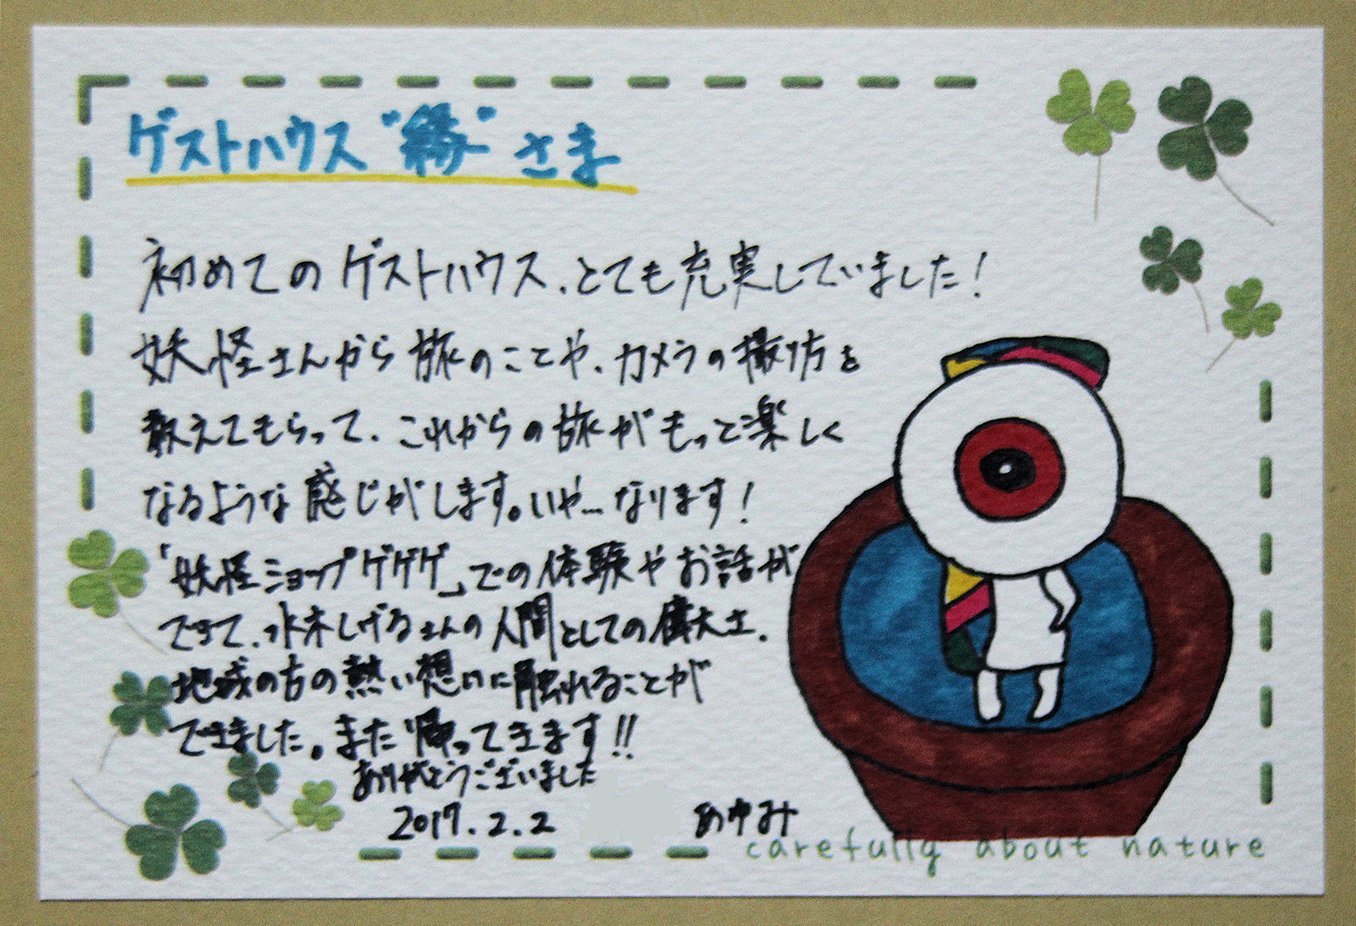 ゲストハウス"縁"さま
初めてのゲストハウス、とても充実していました!
妖怪さんから旅のことや、カメラの撮り方を
教えてもらって、これからの旅がもっと楽しく
なるような感じがします。いや…なります!
「妖怪ショップゲゲゲ」での体験やお話が
できて、水木しげるさんの人間としての偉大さ、
地域の方の熱い想いに触れることが
できました。また帰ってきます!!
ありがとうございました
2017.2.2 あゆみ
carefully about nature